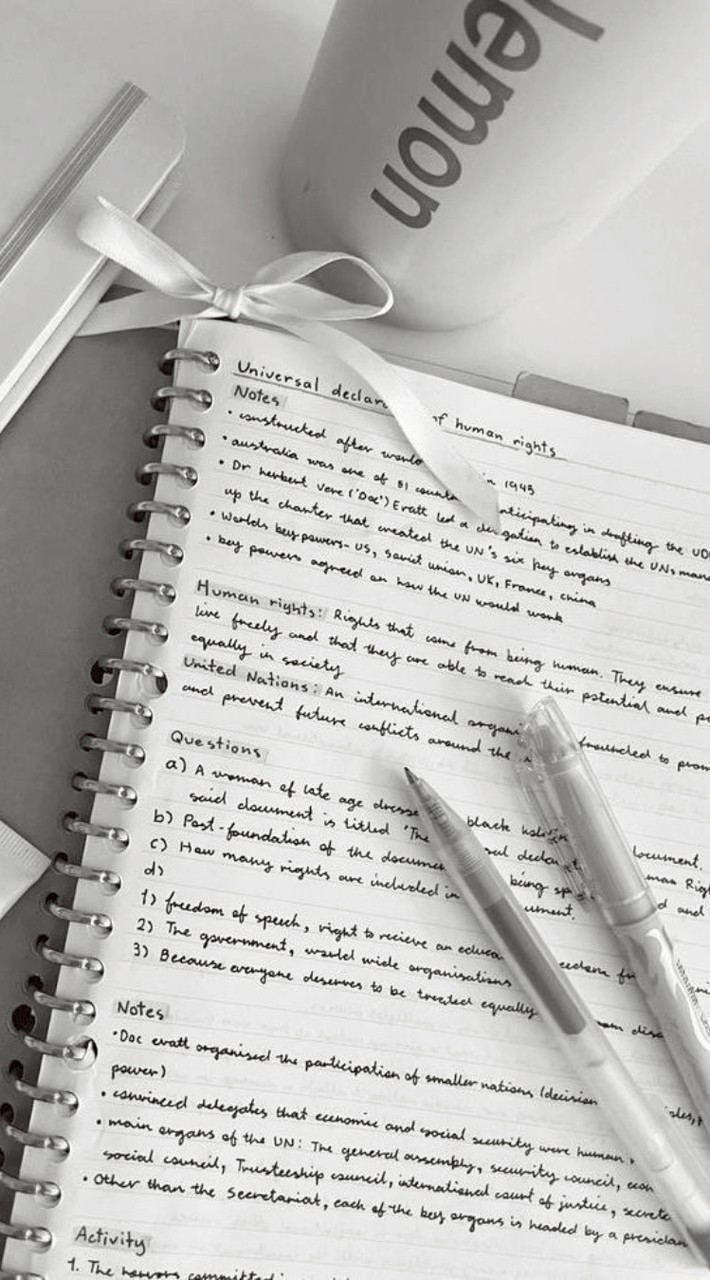 lemon
Universal declar of human rights
Notes
• constructed after world in 1945
• australia was one of 51 count participating in drafting the UD
• Dr herbert Vere ('Doc') Evatt led a delegation to establish the UNs
up the charter that created the UN's six key organs
• Worlds key powers - US, soviet union, UK, France, china
• key powers agreed on how the UN would work
Human rights: Rights that come from being human. They ensure
live freely and that they are able to reach their potential and
equally in society
United Nations: An international organi founded to prom
and prevent future conflicts around the
Questions
a) A woman of late age dresse black holdin document.
said document is titled 'The sal declar man Righ
b) Post-foundation of the documen being sp d and
c) How many rights are included in ument.
d)
1) freedom of speech, right to recieve an educa eedom
2) The government, world wide organisations
3) Because everyone deserves to be treated equally om disc
Notes
• Doc evatt organised the participation of smaller nations (decision
power)
• convinced delegates that economic and social security were human
• main organs of the UN: The general assembly, security council, econ
social council, Trusteeship council, international court of justice, secreta
• Other than the Secretariat, each of the key organs is headed by a presiden
Activity
1. The horrors committed